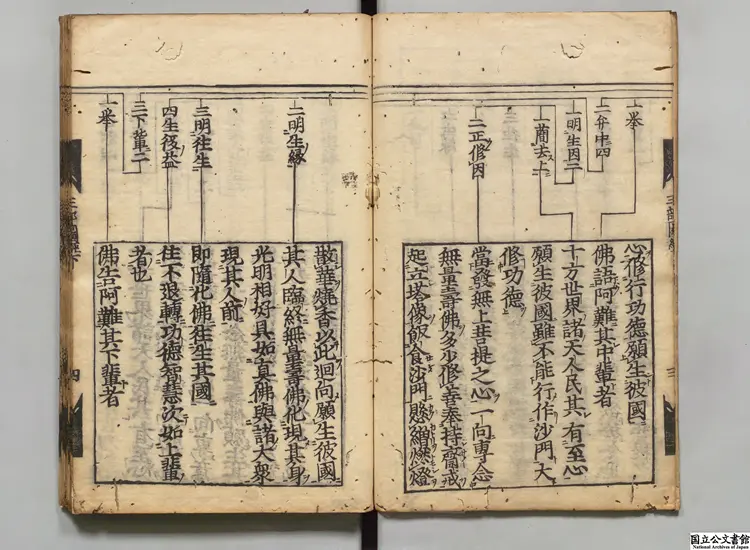 一擧
二弁中四
一明生因二
一蕳去上
二正修因
心修行功德願生彼國
佛語阿難其中輩者
十方世界諸天人民其有至心
願生彼國雖不能行作沙門大
修功德
當發無上菩提之心一向專念
無量壽佛多少修善奉持齋戒
起立塔像飯食沙門懸繒燃燈
三
二明生縁
三明往生
四生後益
三下輩二
一擧
散華燒香以此迴向願生彼國
其人臨終無量壽佛化現其身
光明相好具如真佛與諸大衆
現其人前
即隨化佛往生其國
住不退轉功德智慧次如上輩
者也
佛告阿難其下輩者
四
国立公文書館
National Archives of Japan